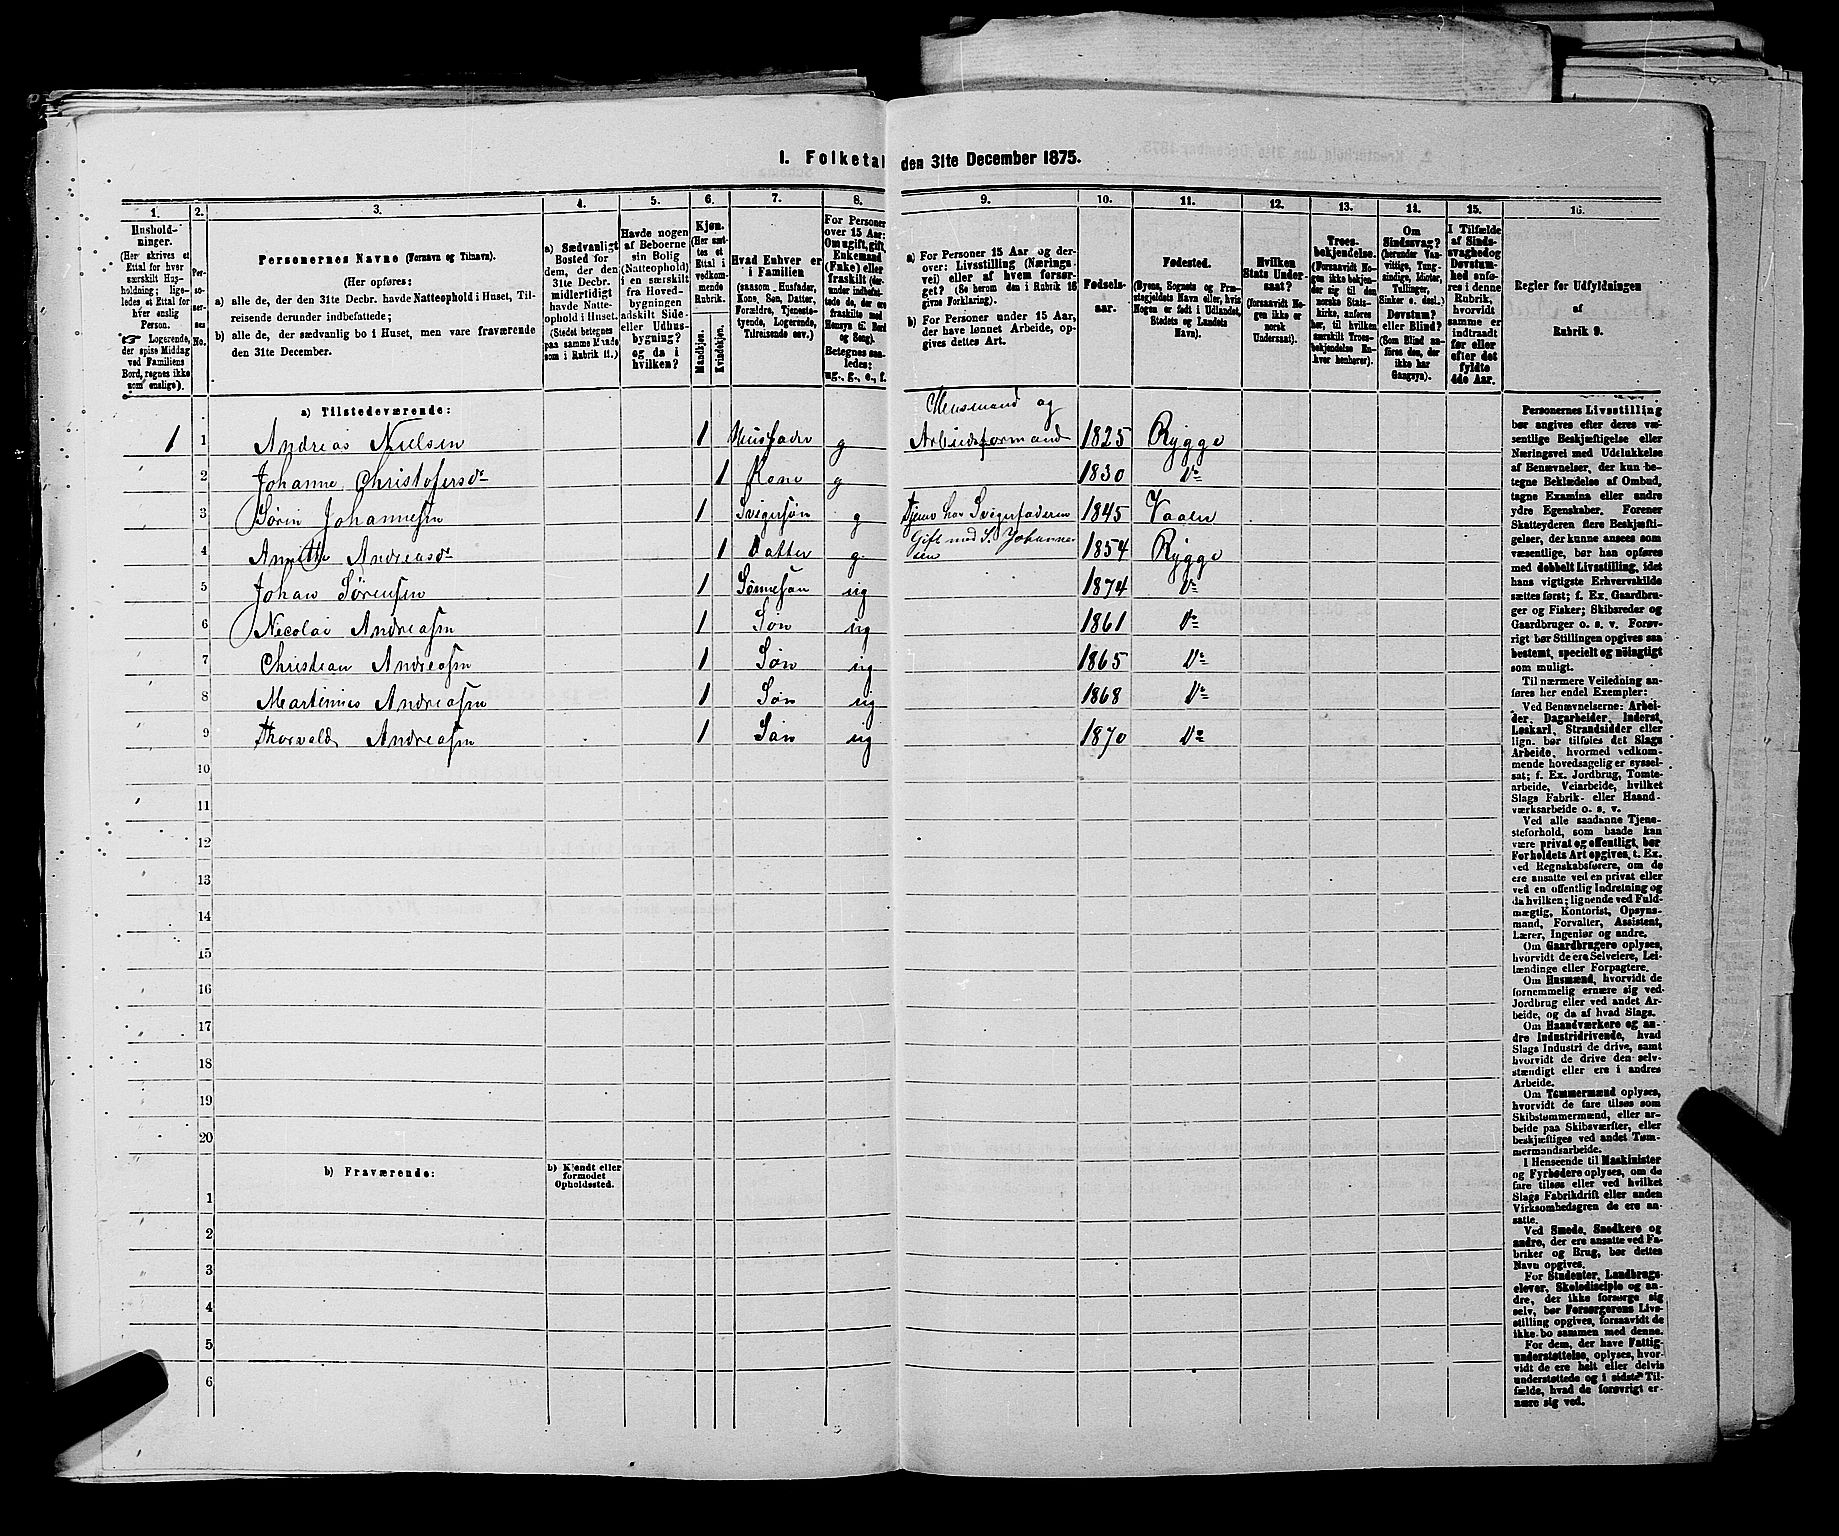 I. Folketal den 31te December 1875.
1. 2. 3. 4. 5. 6. 7. 8. 9. 10. 11. 12. 13. 14. 15. 16.
Husholdninger.
(Her skrives et
Ettal for hver
særskilt Husholdning; ligeledes
et Ettal for
hver enslig
Person.
Logerende,
der spise Middag
ved Familiens
Bord, regnes ikke
som enslige).
Personernes No.
Personernes Navne (Fornavn og Tilnavn).
(Her opføres:
a) alle de, der den 31te Decbr. havde Natteophold i Huset, Tilreisende
derunder indbefattede;
b) alle de, der sædvanlig bo i Huset, men vare fraværende
den 31te December.
a) Sædvanligt
Bosted for
dem, der den
31te Decbr.
midlertidigt
havde Natteophold
i Huset.
(Stedet betegnes
paa samme Maade
som i Rubrik 11.)
Havde nogen
af Beboerne
sin Bolig
(Natteophold)
i en særskilt
fra Hovedbygningen
adskilt Side-
eller Udhusbygning?
og da i
hvilken?
Kjøn.
(Her sættes
et
Ettal i
vedkommende
Rubrik.
Mandkjøn.
Kvindekjøn.
Hvad Enhver er
i Familien
(saasom Husfader,
Kone, Søn, Datter,
Forældre, Tjenestetyende,
Logerende,
Tilreisende osv.)
For Personer
over 15 Aar:
Om ugift, gift,
Enkemand
(Enke) eller
fraskilt (derunder
indbefattede
de, der ere
fraskilte med
Hensyn til Bord
og Seng).
Betegnes saaledes:
ug., g., e., f.
a) For Personer 15 Aar og derover:
Livsstilling (Næringsvei)
eller af hvem forsørget?
(Se herom den i Rubrik 16
givne Forklaring).
b) For Personer under 15 Aar,
der have lønnet Arbeide, opgives
dettes Art.
Fødselsaar.
Fødested.
(Byens, Sognets og Præstegjeldets
Navn eller, hvis
Nogen er født i Udlandet,
Stedets og Landets
Navn).
Hvilken
Stats Undersaat?
(forsaavidt Nogen
ikke er
norsk
Undersaat).
Troesbekjendelse.
(Forsaavidt Nogen
ikke bekjender
sig til den
norske Statskirke,
anføres
her, til hvilken
særskilt Troesbekjendelse
Enhver
henhører).
Om
Sindssvag?
(herunder Vanvittige,
Tungsindige,
Idioter,
Tullinger,
Sinker o. desl.)
Døvstum?
eller Blind?
(Som Blind anføres
den, der
ikke har
Gangsyn).
I Tilfælde
af Sindssvaghed
og
Døvstumhed
anføres
i denne
Rubrik,
hvorvidt
samme er
indtraadt
før eller
efter det
fyldte
4de Aar.
Regler for Udfyldningen
af
Rubrik 9.
a) Tilstedeværende:
Husmand og
1 1 Andreas Nielsen 1 Husfader g Arbeidsformand 1825 Rygge
2 Johanne Christofersdr 1 Kone g 1830 Do
3 Sørin Johannesen 1 Svigersøn g Tjener hos Svigerfaderen 1845 Vaaler
4 Annette Andreasdr 1 Datter g. Gift med S. Johannesen 1854 Rygge
5 Johan Sørensen 1 Sønnesøn ug 1874 Do
6 Necolai Andreasen 1 Søn ug 1861 Do
7 Christian Andreasen 1 Søn ug 1865 Do
8 Martinius Andreasen 1 Søn ug 1868 Do
9 Thorvald Andreasen 1 Søn ug 1870 Do
10
11
12
13
14
15
16
17
18
19
20
b) Fraværende:
b) Kjendt eller
formodet
Opholdssted.
1
2
3
4
5
6
Personernes Livsstilling
bør angives efter deres væsentlige
Beskjæftigelse eller
Næringsvei med Udelukkelse
af Benævnelser, der kun betegne
Beklædelse af Ombud,
tagne Examina eller andre
ydre Egenskaber. Forener
Skatteyderen flere Beskjæftigelser,
der kunne ansees som
væsentlige, bør han opføres
med dobbelt Livsstilling, idet
hans vigtigste Erhvervskilde
sættes først; f. Ex. Gaardbruger
og Fisker; Skibsreder og
Gaardbruger o. s. v. Forøvrigt
bør Stillingen opgives saa
bestemt, specielt og nøiagtigt
som muligt.
Til nærmere Veiledning anføres
her endel Exempler:
Ved Benævnelserne: Arbeider,
Dagarbeider, Inderst,
Løskarl, Strandsidder eller
lign. bør tilføies det Slags
Arbeide, hvormed vedkommende
hovedsagelig er sysselsat;
f. Ex. Jordbrug, Tomtearbeide,
Veiarbeide, hvilket
Slags Fabrik- eller Haandværksarbeide
o. s. v.
Ved alle saadanne Tjenesteforhold,
som baade kan
være privat og offentligt, bør
Forholdets Art opgives, t. Ex.
ved Regnskabsførere, om de
ere ansatte ved en privat eller
ved en offentlig Indretning og
da hvilken; lignende ved Fuldmægtig,
Kontorist, Opsynsmand,
Forvalter, Assistent,
Lærer, Ingeniør og andre.
Om Gaardbrugere oplyses,
hvorvidt de ere Selveiere, Leilændinge
eller Forpagtere.
Om Husmænd, hvorvidt de
fornemmelig ernære sig ved
Jordbrug eller ved andet Arbeide,
og da af hvad Slags.
Om Haandværkere og andre
Industridrivende, hvad
Slags Industri de drive, samt
hvorvidt de drive den selvstændigt
eller ere i andres
Arbeide.
Om Tømmermænd oplyses,
hvorvidt de fare tilsøs som
Skibstømmermænd, eller arbeide
paa Skibsværfter, eller
beskjæftiges ved andet Tømmermandsarbeide.
I Henseende til Maskinister
og Fyrbødere oplyses, om de
fare tilsøs eller ved hvilket
Slags Fabrikdrift eller anden
Virksomhedsgren de ere ansatte.
Ved Smede, Snedkere og
andre, der ere ansatte ved Fabriker
og Brug, bør dettes
Navn opgives.
For Studenter, Landbrugselever,
Skoledisciple og andre,
der ikke forsørge sig
selv, bør Forsørgerens Livsstilling
opgives, forsaavidt de
ikke bo sammen med denne.
For dem, der have Fattigunderstøttelse,
oplyses, hvorvidt
de ere helt eller delvis
understøttede og i sidste Tilfælde,
hvad de forøvrigt ernære
sig ved.